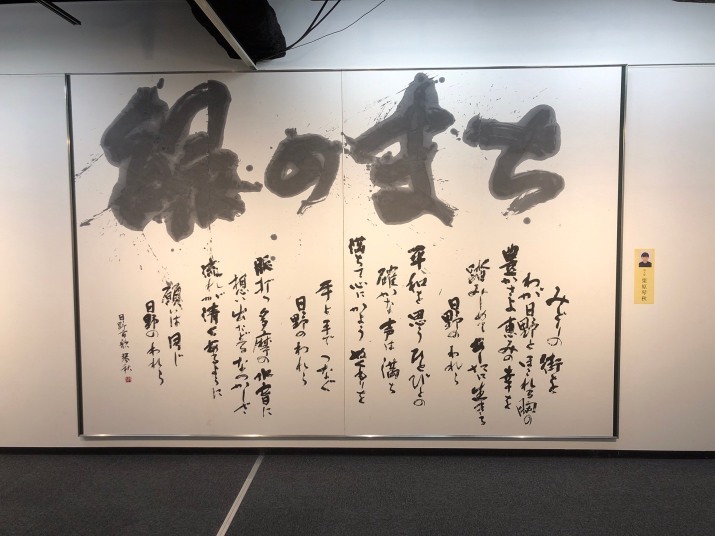 緑のまち
みどりの街を
わが日野とほこれる胸の
豊かさよ恵みの幸を
踏みしめてあしたに生きる
日野のわれら
平和を思うひとびとの
確かな声は満ち
満ちて心にかよう ぬくもりを
手と手でつなぐ
日野のわれら
脈打つ多摩の水音に
想い出たどるなつかしさ
流れが清くあるように
願いは同じ
日野のわれら
日野市歌 琴秋